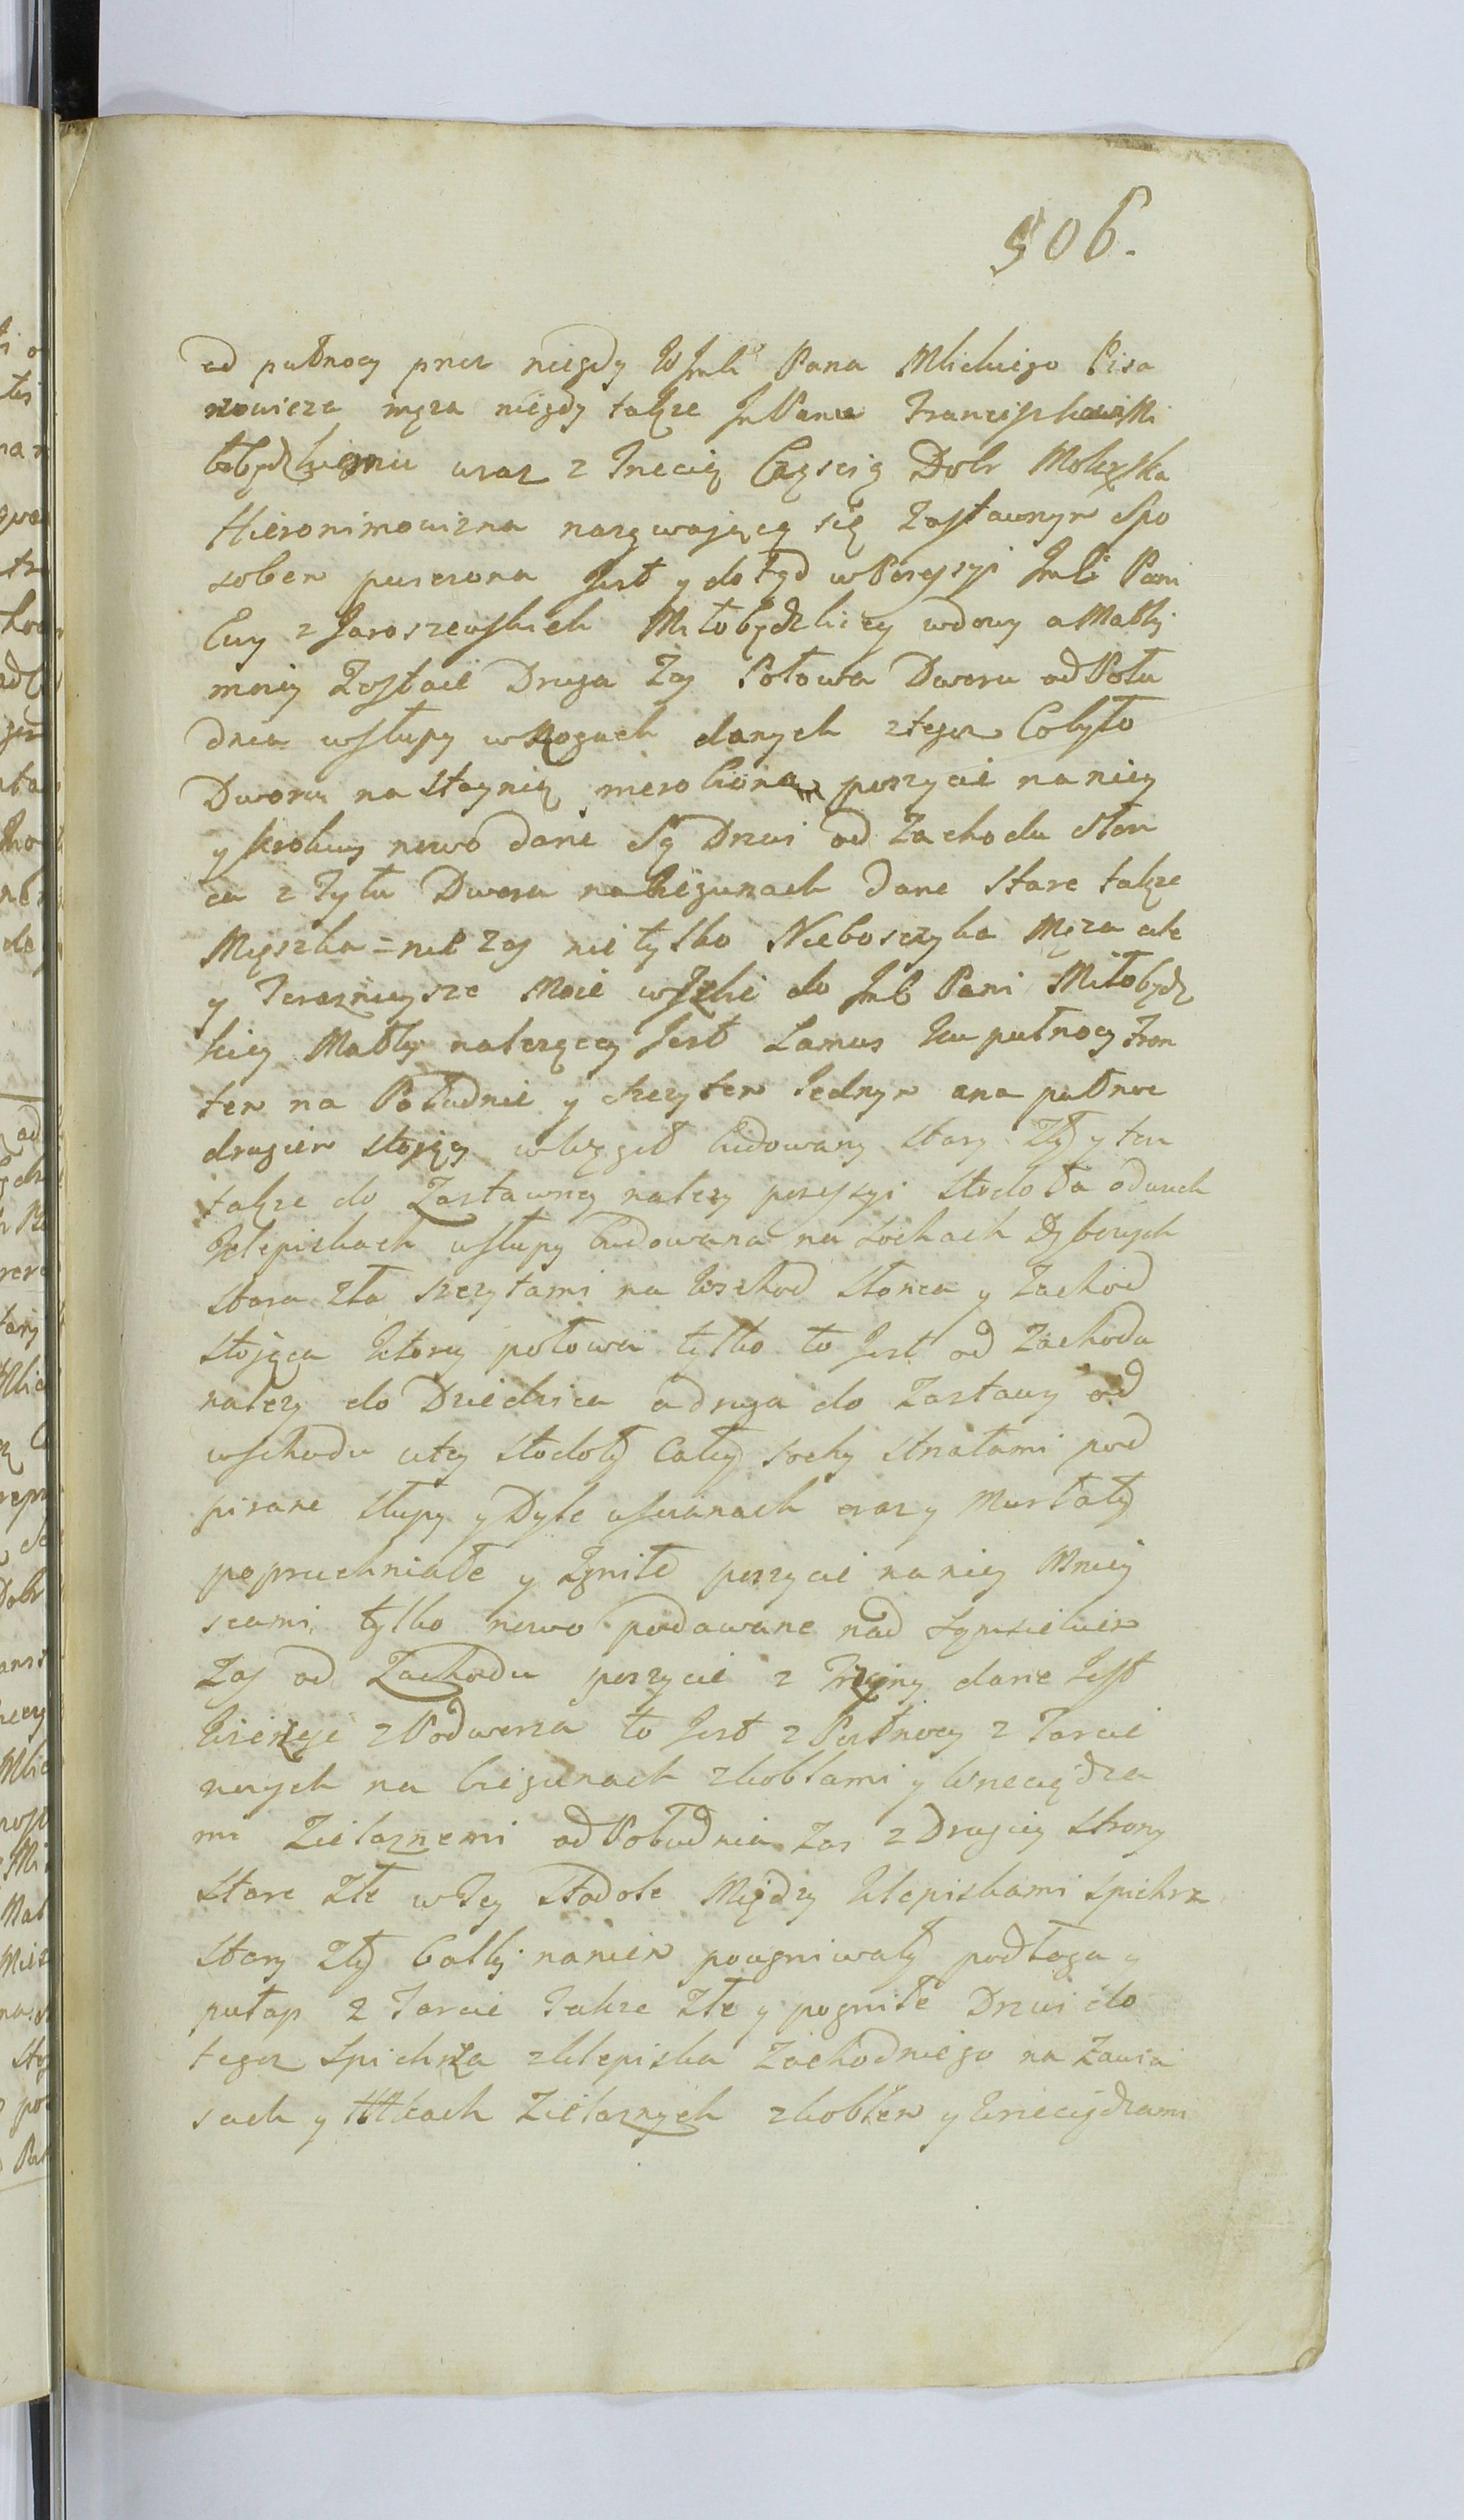 506.
od pułnocy przez niegdy WJmci Pana Mlickiego Pisa
rzewicza męża niegdy także JmPana Franciszkowi Mi
łobędzkiemu wraz z Trzecią Częscią Dobr Molęzka
Hieronimowizna nazywającą się Zastawnym Spo
sobem puszczona Jest y dotyd w Possessyi Jmci Pani
Ewy z Jaroszewskich Miłobędzkiey wdowy a Matky
moiey Zostaie Druga Zas Połowa Dworu od Połu
dnia w słupy w Rogach danych z tegoz Cobyło
Dworu na staynię przerobiona poszycie na niey
y krokwy nowo dane Są Drzwi od Zachodu słon
ca z Tyłu Dworu na biegunach dane stare także
Mieszka=nie Zas nie tylko Nieboszczyka Męża ale
y Terazneysze Moie w Izbie do Jmć Pani Miłobędz
kiey Matky nalezącey Jest Lamus ku pułnocy Fron
tem na Południe y szczytem Jednym ana pułnoc
drugim stojący w węgieł budowany stary Zły y ten
także do Zastawney nalezy possessyi stodoła o dwuch
klepiskach w słupy budowana na sochach Dębowych
stara zła szczytami na Wschod słonca y Zachod
stojąca ktorey połowa tylko to Jest od Zachodu
nalezy do Dziedzica a druga do Zastawy od
wschodu u tey stodoły Całey sochy strzałami pod
pisane słupy y Dyle w scianach oraz y Murłaty
popruchniałe y Zgniłe poszycie na niey Miey
scami tylko nowo podawane nad Sąmsiekiem
Zas od Zachodu poszycie z Trzciny dane Jest
Wierzeje z Podworza to Jest z Pułnocy z Tarcic
nowych na biegunach z kobłami y wrzeciądza
mi Zielaznemi od Południa Zas z Drugiey strony
stare złe w Tey stodole Między klepiskami spichrz
stary zły balki na niem pougniwały podłoga y
pułap z Tarcic Także Złe y pogniłe Drzwi do
tegoz spichrza z klepiska Zachodniego na Zawia
sach y Hakach Zielaznych z kobłem y wrzeciądzami